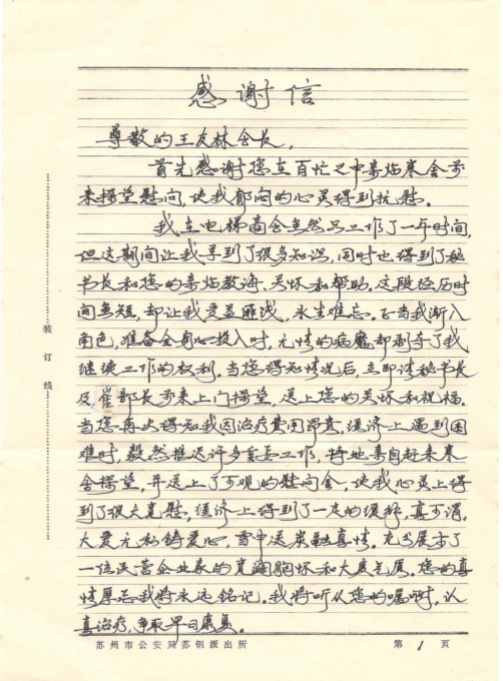 感谢信
尊敬的王友林会长,
首先感谢您在百忙之中亲临寒舍前
来探望慰问,使我郁闷的心灵得到抚慰。
我在电梯商会虽然只工作了一年时间,
但这期间让我学到了很多知识,同时也得到了秘
书长和您的亲临教诲、关怀和帮助,这段经历时
间虽短,却让我受益匪浅,永生难忘。正当我渐入
角色,准备全身心投入时,无情的病魔却剥夺了我
继续工作的权利。当您得知情况后,立即请秘书长
及崔部长前来上门探望,送上您的关怀和祝福。
当您再次得知我因治疗费用昂贵,经济上遇到困
难时,毅然推迟许多重要工作,特地亲自赶来寒
舍探望,并送上了可观的慰问金,使我心灵上得
到了很大宽慰,经济上得到了一定的缓释,真可谓:
大爱无私铸爱心,雪中送炭融真情。充分展示了
一位民营企业家的宽阔胸怀和大度气魄。您的真
情厚意我将永远铭记。我将听从您的嘱咐,认
真治疗,争取早日康复。
装订线
苏州市公安局苏钢派出所 第 1 页